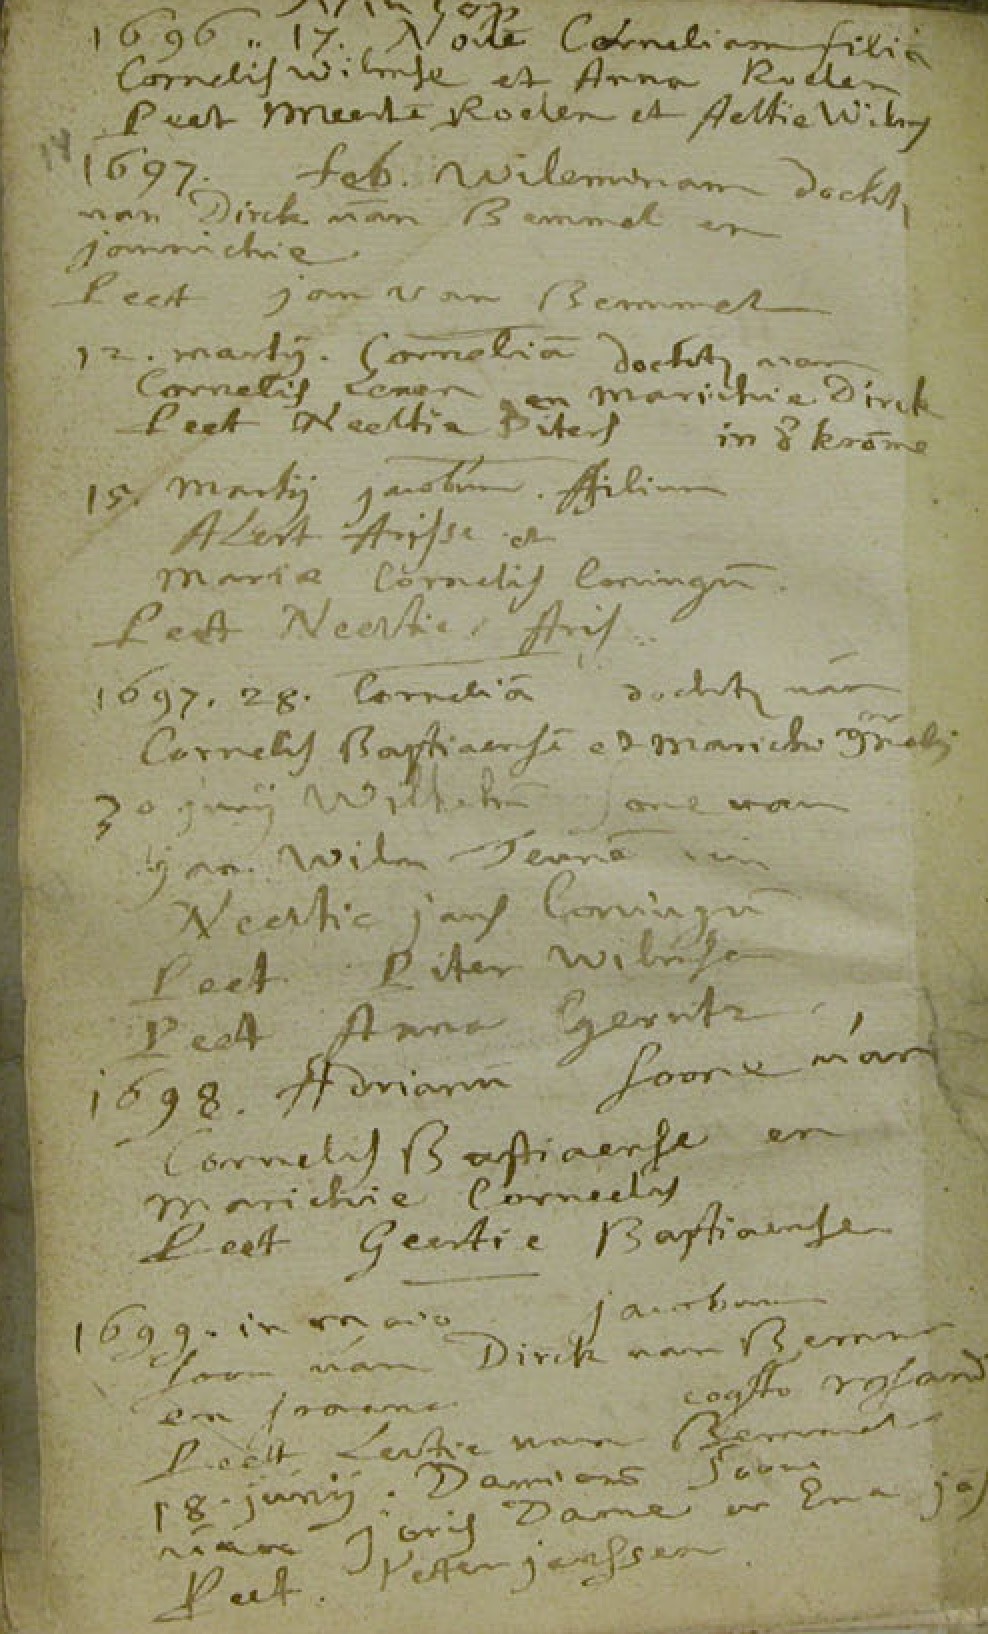 1696 .. 17. Novē Corneliam filia
Cornelis Wilmse et Anna Roelen
Peet Meerte Roelen et Aeltie Wilms
1697. feb. Wileminam docht,
van Dirck van Bemmel en
jannichie
Peet jan van Bemmel
12. martij. Corneliā docht, van
Cornelis en Marichie Dirck
Peet Neeltie Piters in d krōme
15. Martij jacobum. ffilium
Alert Arisse et
Maria Cornelis Coningē.
Peet Neeltie Aris
1697. 28. Corneliā docht, van
Cornelis Bastiaensē et Marichi
30 junij Wilhelm Sone van
jan Wilm Teunē en
Neeltie jans Coningē
Peet Piter Wilmse
Peet Anna Gerritz
1698. Adrianū soone van
Cornelis Bastiaense en
Marichie Corneelis
Peet Geertie Bastiaensen
1699. in maio jacobum
soon van Dirck van Bemme
en joanna
Peet van Bemmel
18. junij. Damianū soone
van joris Dame en Eva jās
Peet. Peter janssen